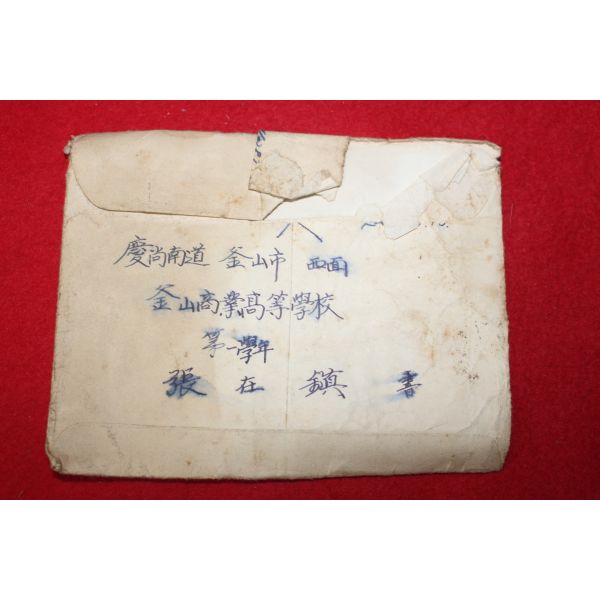 慶尚南道 釜山市 西面
釜山商業高等學校
第一學年
張在鎮 書